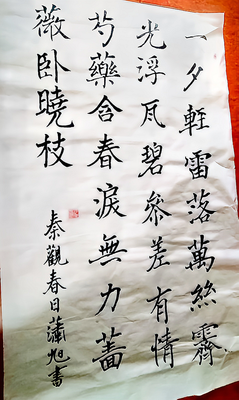 一夕輕雷落萬絲霽
光浮瓦碧參差有情
芍藥含春淚無力薔
薇卧曉枝
秦觀春日蒲旭書